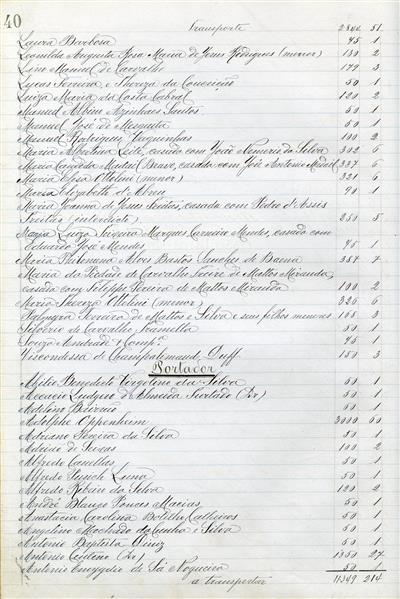 40
Transporte 2844 51
Laura Barbosa 45 1
Leonilda Augusta Rosa Maria de Jesus Rodrigues (menor) 130 2
Lino Manuel de Carvalho 179 3
Lucas Ferreira e Thereza da Conceição 50 1
Luiza Maria da Costa Cabral 120 2
Manuel Albino Azinhaes Santos 50 1
Manuel José de Mesquita 50 1
Manuel Rodrigues 100 2
Maria Albertina Leite, casada com José Nemorio da Silva 302 6
Maria Candida Madre Bravo, casada com José Antonio 337 6
Maria Elisa Ottolini (menor) 321 6
Maria Elizabeth d'Abreu 90 1
Maria Joanna de Jesus Freitas, casada com Pedro d'Assis
Freitas (interdicto) 250 5
Maria Luiza Teixeira Marques Carneiro Mendes, casada com
Eduardo José Mendes 45 1
Maria Philomena Alves Bastos Sanches de Baena 357 7
Maria da Piedade de Carvalho Freire de Mattos Miranda,
casada com Filippe Pereira de Mattos Miranda 100 2
Maria Thereza Ottolini (menor) 325 6
Pereira de Mattos e Silva e seus filhos menores 165 3
de Carvalho 50 1
Souza Andrade & Compª 45 1
Viscondessa de Champalimaud Duff 150 3
Portador
Abilio Benedicto da Silva 50 1
Macario de Almeida Furtado (Dr) 50 1
Adelino 50 1
Adolpho Oppenheim 3000 60
Adriano Pereira da Silva 50 1
de Seixas 100 2
Alfredo Canellas 50 1
Alfredo Luna 50 1
Alfredo Ribeiro da Silva 120 2
André Blanco Ponces Macias 50 1
Anastacia Carolina 50 1
Angelino Machado da Cunha e Silva 50 1
Antonio Baptista Diniz 50 1
Antonio Centeno (Dr) 1350 27
Antonio Emygdio de Sá Nogueira 50 1
a transportar 11349 214